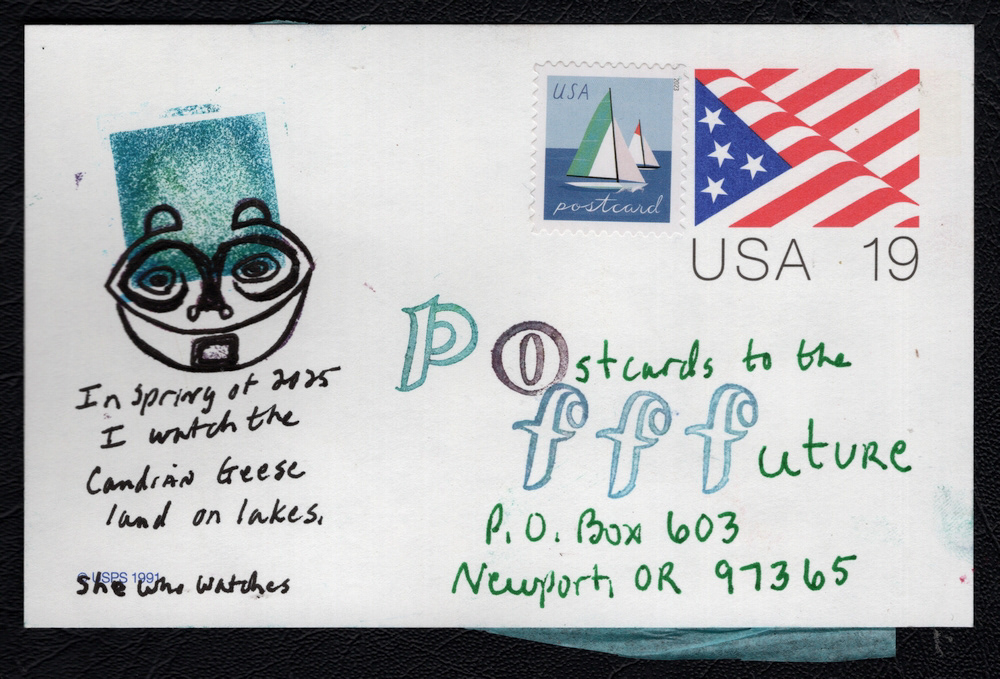 USA
2023
postcard
USA 19
In Spring of 2025
I watch the
Candrian Geese
land on lakes.
© USPS 1991
She who watches
Postcards to the
fffuture
P.O. Box 603
Newport, OR 97365